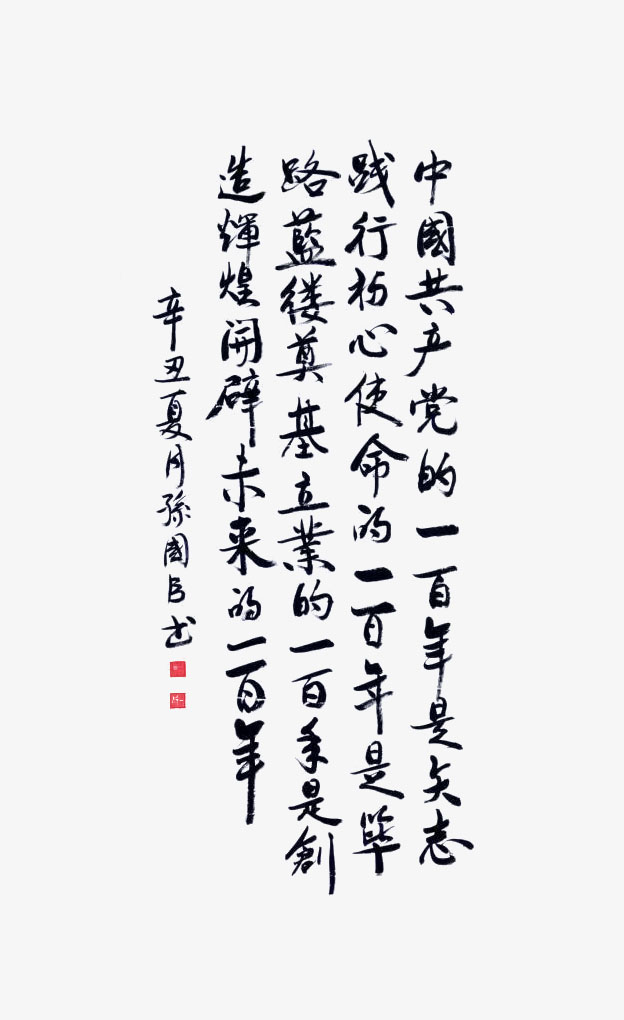 中國共产党的一百年是矢志
践行初心使命的一百年是筚
路藍缕奠基立業的一百年是創
造輝煌開辟未来的一百年
辛丑夏月孫國臣书